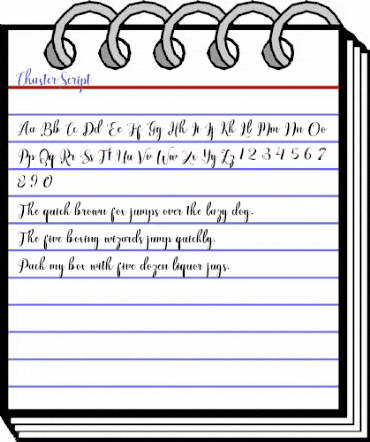 Thaster Script
Aa Bb Cc Dd Ee Ff Gg Hh Ii Jj Kk Ll Mm Nn Oo
Pp Qq Rr Ss Tt Uu Vv Ww Xx Yy Zz 1 2 3 4 5 6 7
8 9 0
The quick brown fox jumps over the lazy dog.
The five boxing wizards jump quickly.
Pack my box with five dozen liquor jugs.